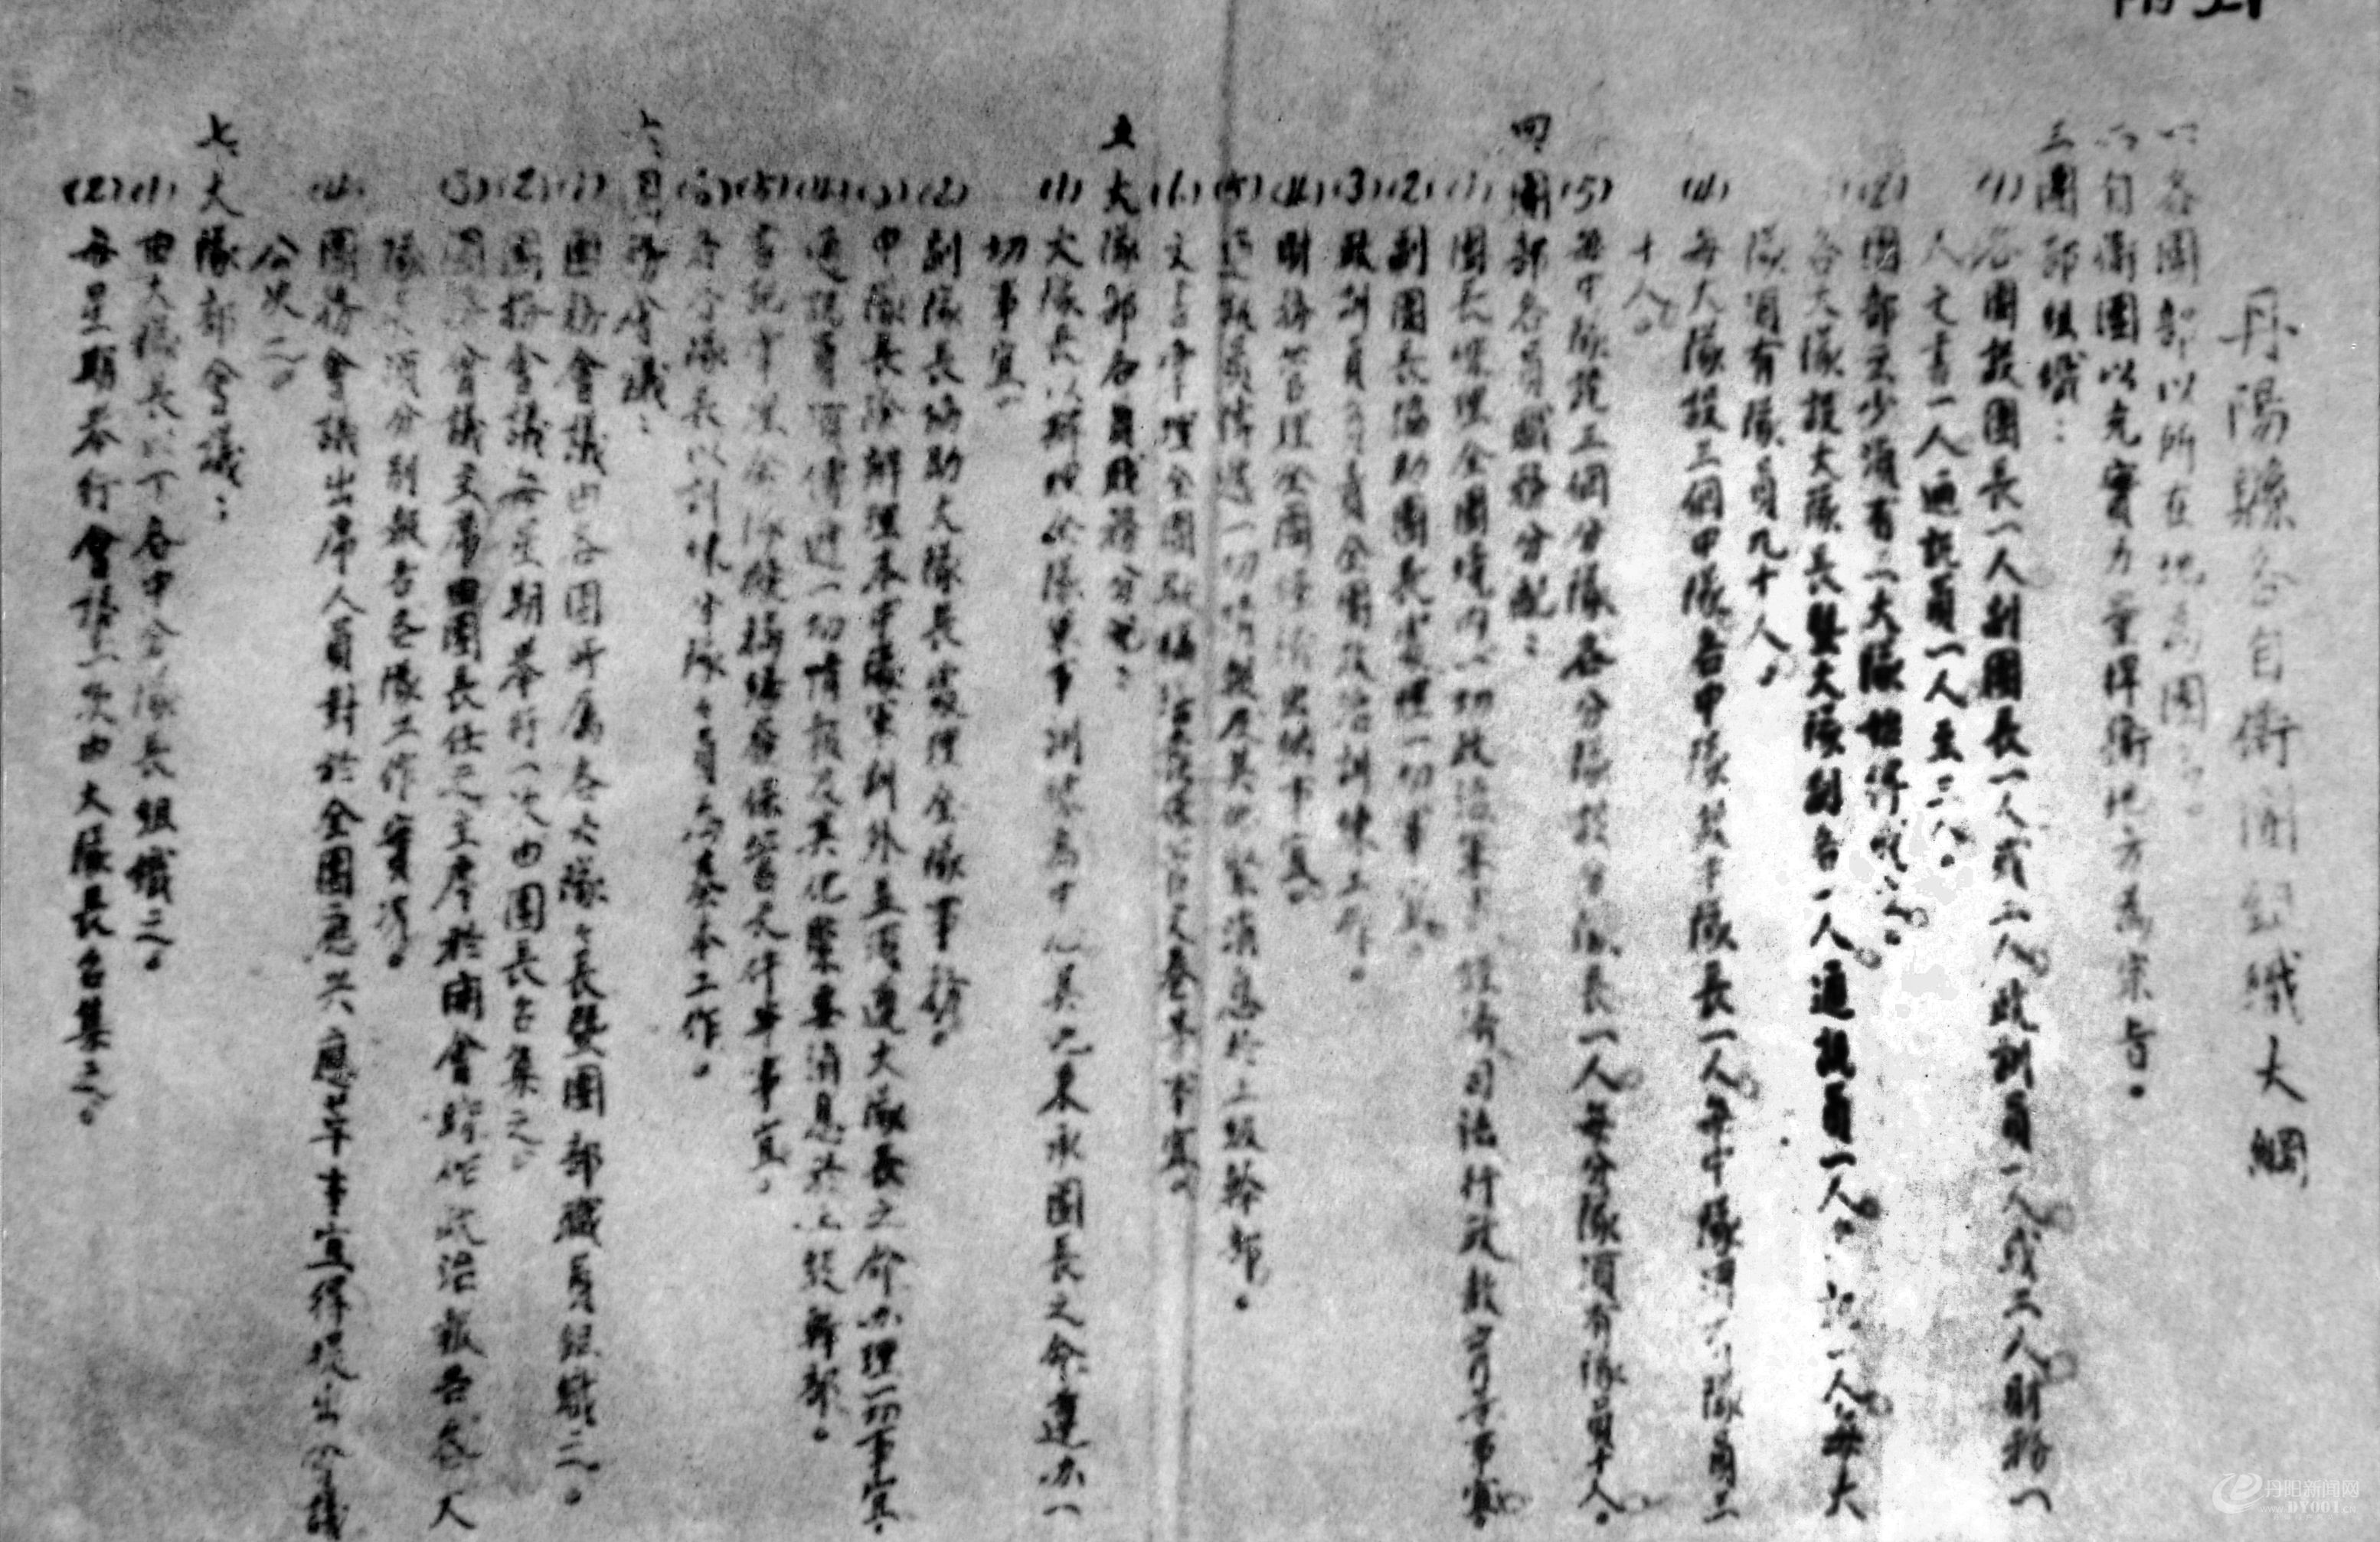 丹陽縣各自衛團組織大綱
一、各團部以所在地為團
二、自衛團以充實力量捍衛地方為宗旨。
三、團部組織：
(1)各團設團長一人副團長一人或二人政訓員一人或二人財務一
人文書一人通訊員一人至三人。
(2)團部至少須有二大隊始得成立。
各大隊設大隊長暨大隊副各一人通訊員一人。書記一人每大
隊須有隊員九十人。
(4)每大隊設三個中隊各中隊設中隊長一人每中隊須有隊員三
十人。
(5)每中隊設三個分隊各分隊設分隊長一人每分隊須有隊員十人。
四、團部各員職務分配：
(1)團長處理全團境內一切政治軍事經濟司法行政教育等事宜。
(2)副團長協助團長處理一切事宜。
(3)政訓員負責全團政治訓練工作。
(4)財務管理全團經濟出納事宜。
(5)通訊員傳遞一切情報及其他緊消息於上級幹部。
(6)文書管理全團 文卷等事宜。
五、大隊部各員職務分配：
(1)大隊長以辦理全隊軍事訓練為中心其他秉承團長之命遵办一
切事宜。
(2)副隊長協助大隊長處理全隊事務。
(3)中隊長除辦理本中隊軍訓外並須遵大隊長之命办理一切事宜。
(4)通訊員須傳遞一切情報及其他緊要消息於上級幹部。
(5)書記掌理全隊撰擬繕寫保管文件等事宜。
(6)各分隊長以訓練分隊隊員為基本工作。
六、團務會議：
(1)團務會議由各團所屬各大隊隊長暨團部職員組織之。
(2)團務會議每星期举行一次由團長召集之。
(3)團務會議主席由團長任之主席於開會時作政治報告各大
隊長須分別報告各隊工作實情。
(4)團務會議出席人員對於全團應興應革事宜得提出會議
公決之。
七、大隊部會議：
(1)由大隊長以下各中分隊長組織之。
(2)每星期举行會議一次由大隊長召集之。
丹阳新闻网
WWW.DY001.CN